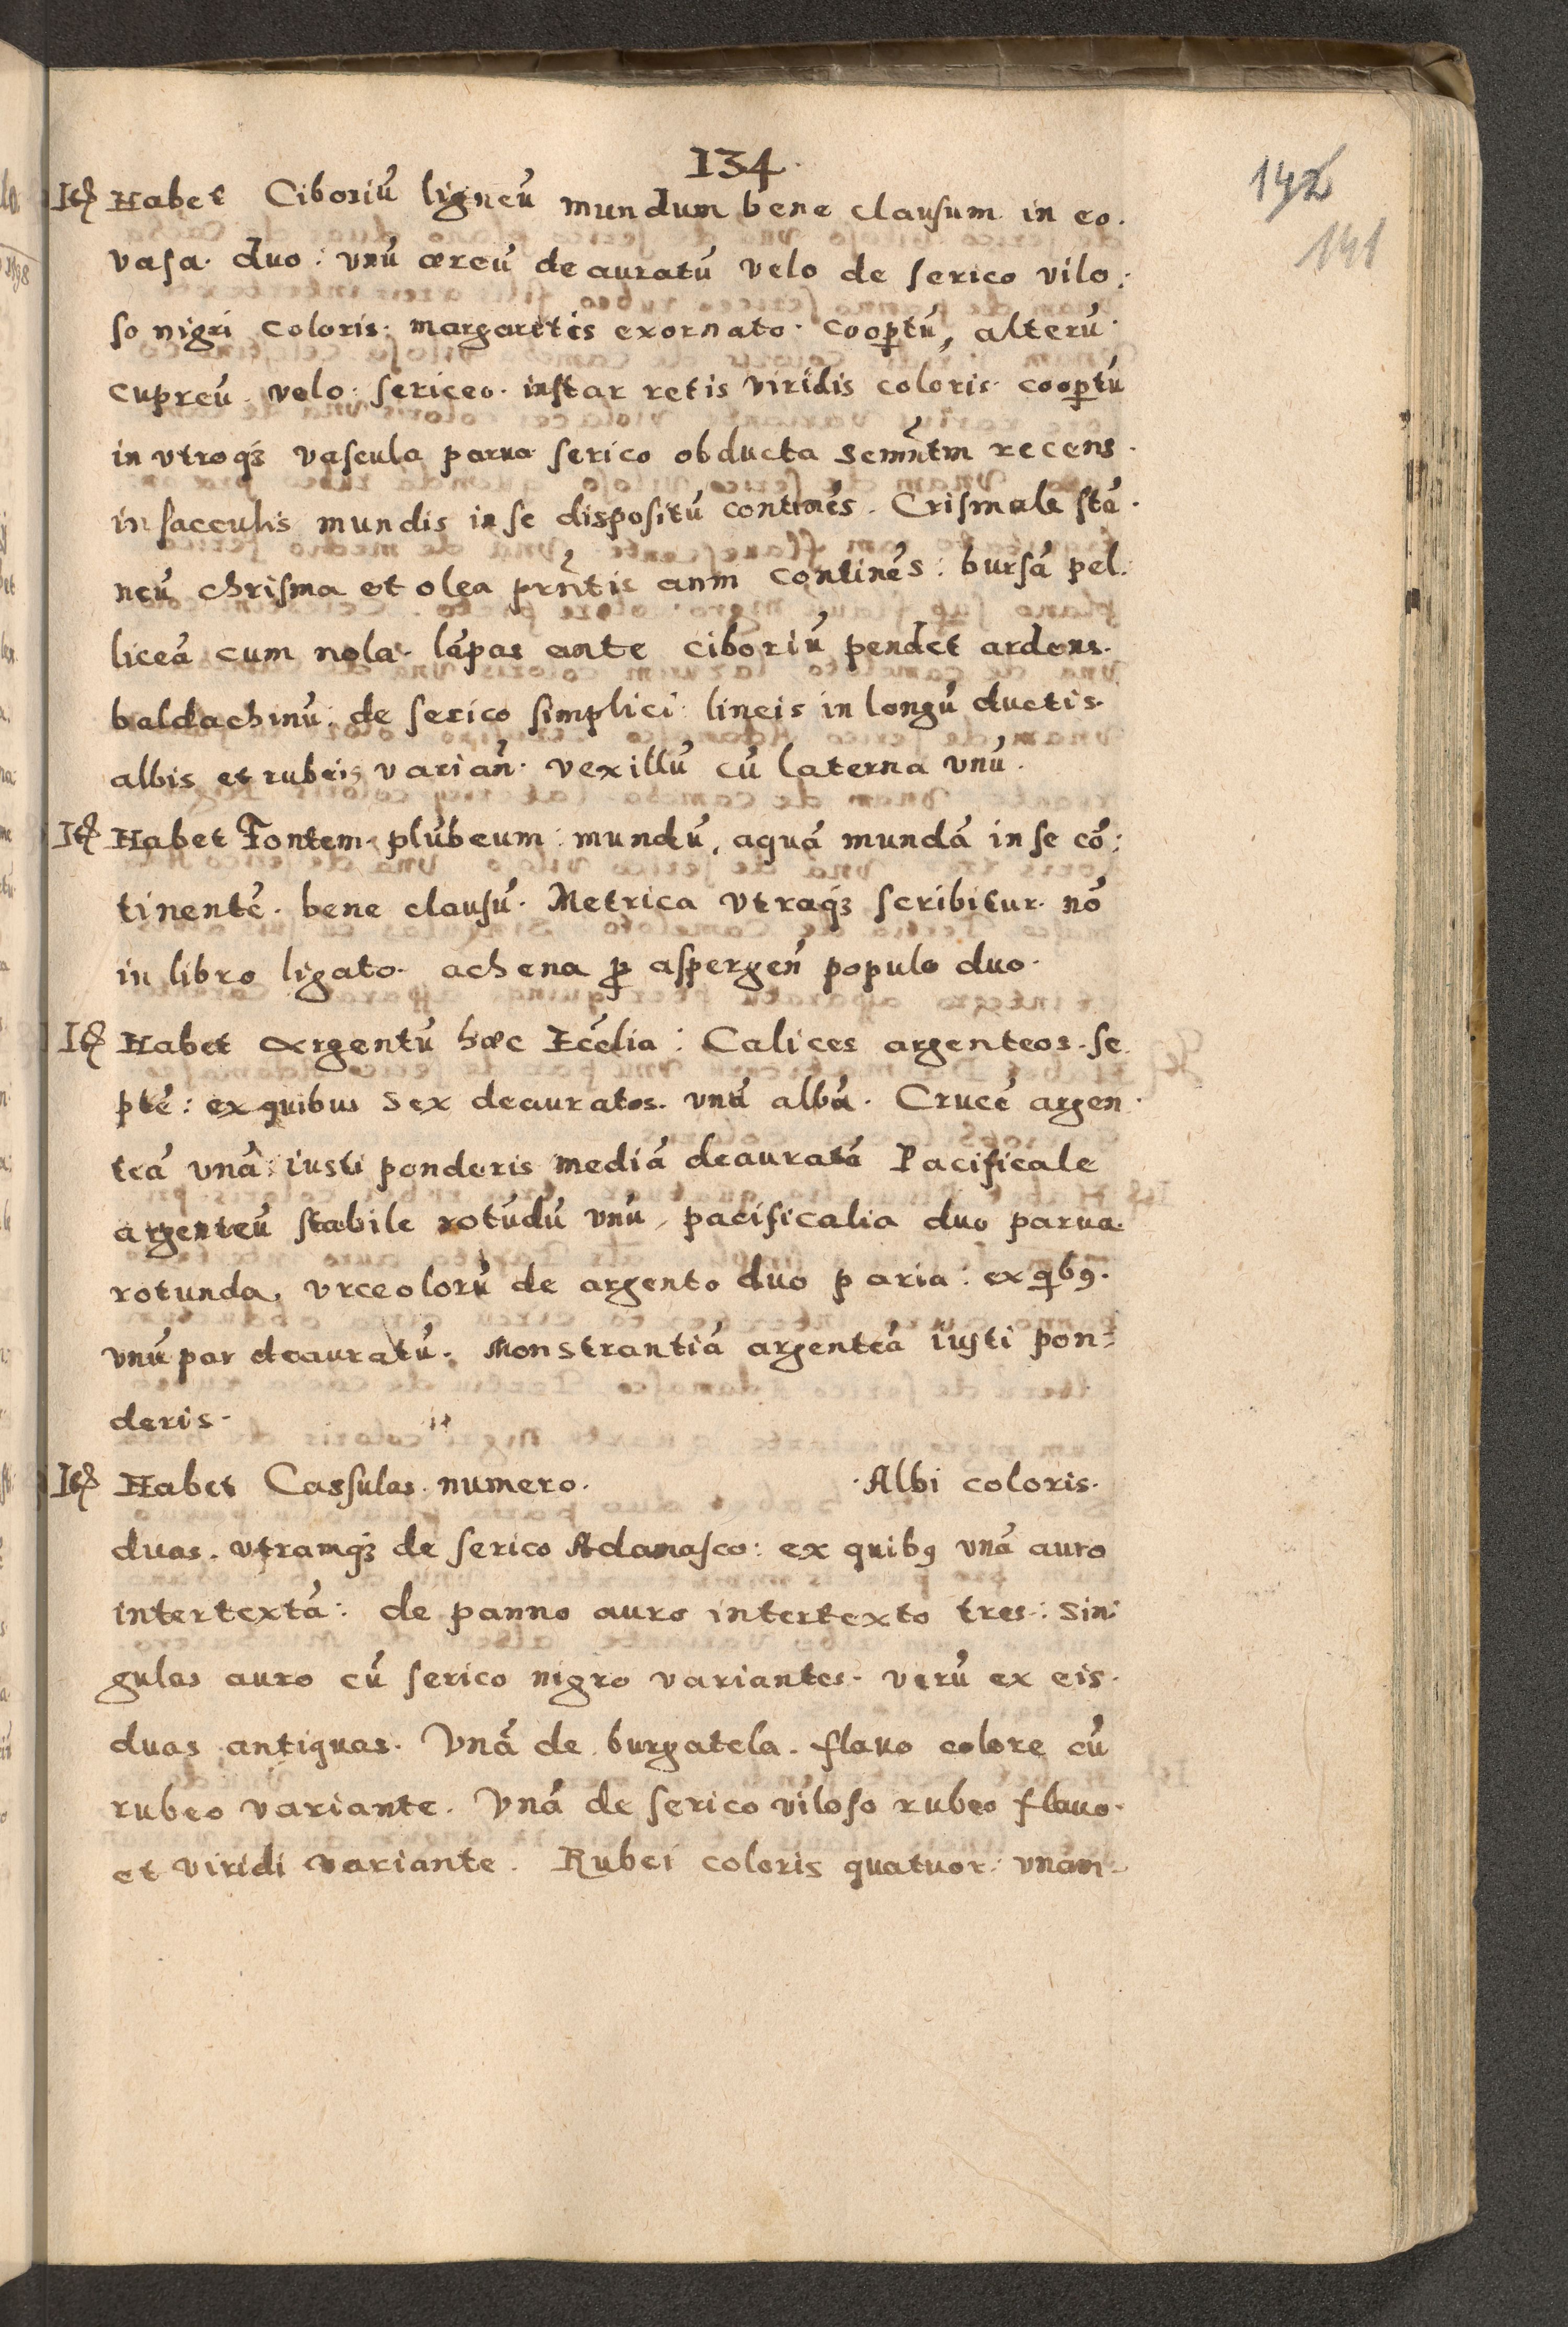 134
142
141
Itē Habet Ciboriū ligneū mundum bene clausum in eo.
vasa duo: vnū æreū deauratū velo de serico vilo:
so nigri coloris. margaritis exornato. coop̱tū, alterū
cupreū velo sericeo instar retis viridis coloris coop̱tū
in vtroqꝫ vascula parua serico obducta Sem̄ntm recens.
in sacculis mundis in se dispositū continēs. Crismale sta.
neū chrisma et olea prn̄tis anm continēs: bursā pel:
liceā cum nola. lāpas ante ciboriū pendet ardens.
baldachinū: de serico simplici: lineis in longū ductis.
albis et rubeis varian̄. vexillū cū laterna vnū.
Itē Habet Fontem plūbeum: mundū, aquā mundā in se cō:
tinentē. bene clausū. Metrica vtraqꝫ scribitur nō
in libro ligato. achena ꝓ aspergen̄ populo duo.
Itē Habet argentū hæc Eccl̄ia: Calices argenteos. se
ptē: ex quibus sex deauratos. vnū albū. Crucē argen
teā vnā iusti ponderis mediā deauratā Pacificale
argenteū stabile rotūdū vnū, pacificalia duo parua.
rotunda, vrceolorū de argento duo paria: ex qibꝰ.
vnū par deauratū. Monstrantiā argenteā iusti pon:
deris.
Itē Habet Cassulas numero. Albi coloris.
duas. vtramqꝫ de serico Adamasco: ex quibꝰ vnā auro
intertextā: de panno auro intertexto tres: sin:
gulas auro cū serico nigro variantes. verū ex eis.
duas antiquas. Vnā de burgatela. flauo colore cū
rubeo variante. Vnā de serico viloso rubeo flauo.
et viridi variante. Rubei coloris quatuor: vnam